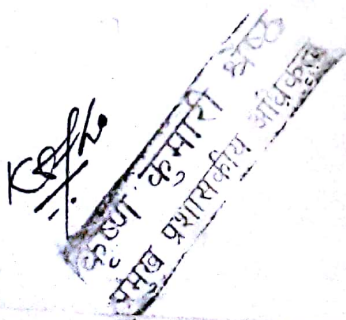 कृष्ण कुमारी श्रेष्ठ
प्रमुख प्रशासकीय अधिकृत